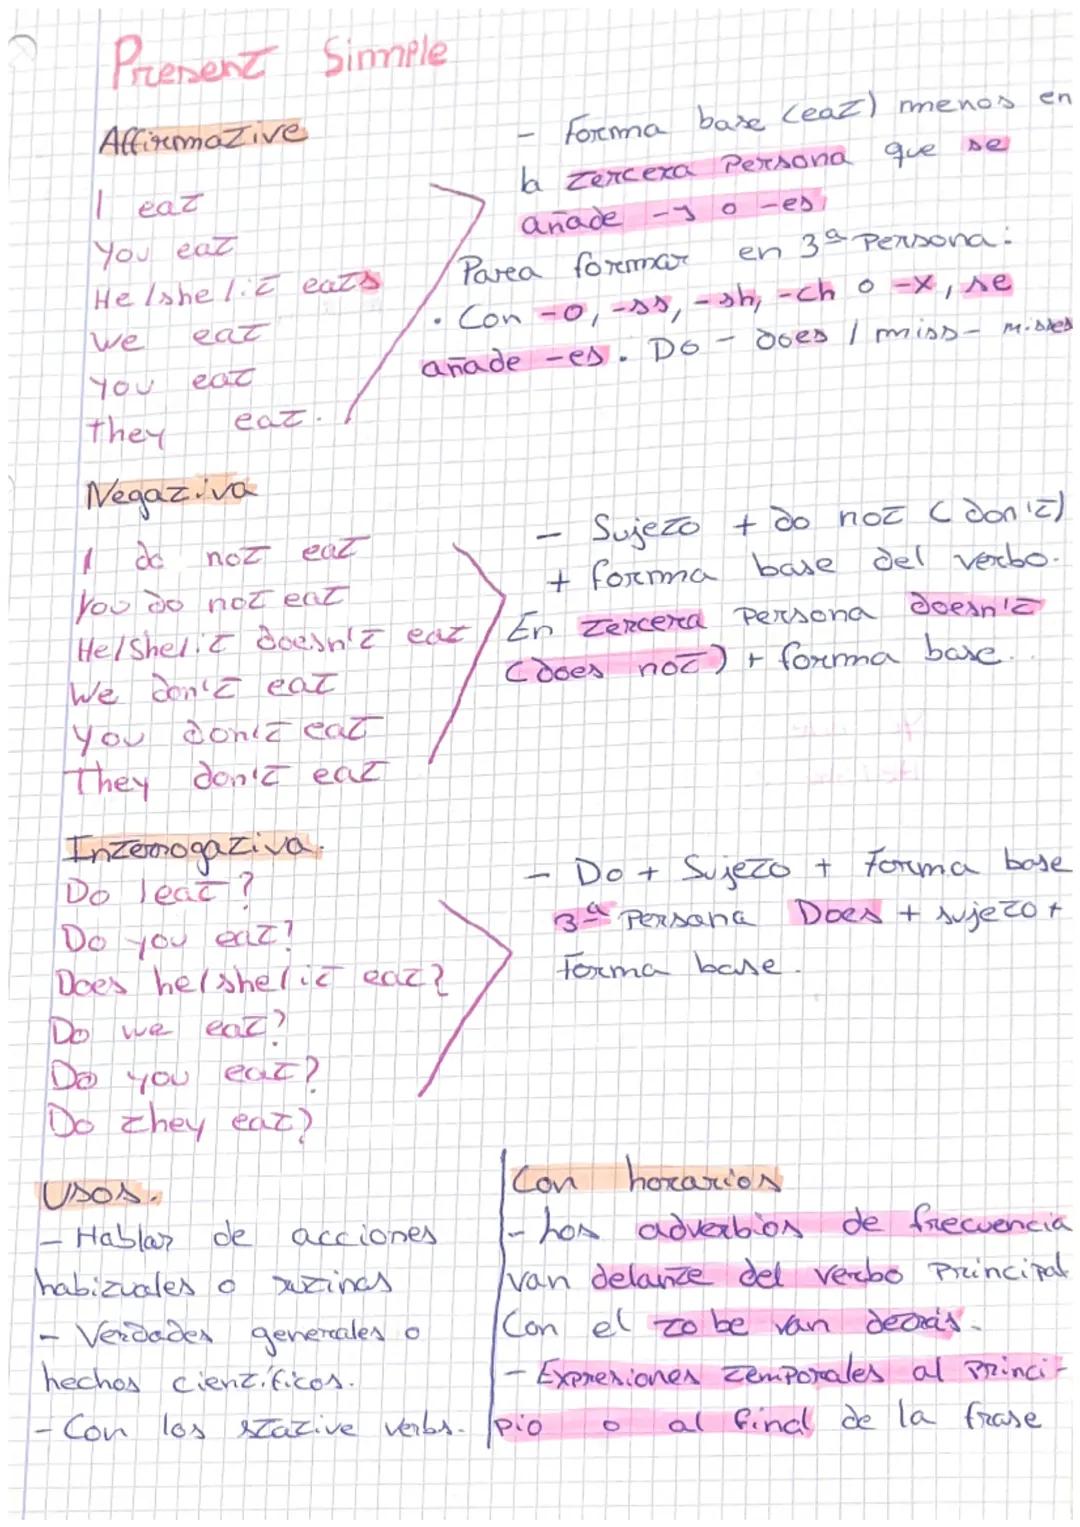 Present Simple
Affirmative
I eat
You eat
He/she/it eats
We eat
You eat
they eat.
- Forma base (eat) menos en
la tercera Persona que se
añade -s o -es,
Parea formar en 3ª Persona:
· Con -o, -ss, -sh, -ch o -x, se
añade -es. Do - does / miss - misses
Negativa
I do not eat
You do not eat
He/She/it doesn't eat
We don't eat
You don't eat
They don't eat
- Sujeto + do not (don't)
+ forma base del verbo.
En tercera Persona doesn't
(does not) + forma base..
Interrogativa.
Do I eat?
Do you eat?
Does he/she/it eat?
Do we eat?
Do you eat?
Do they eat?
- Do + Sujeto + Forma base
3ª Persona Does + sujeto +
Forma base.
Usos.
- Hablar de acciones
habituales o rutinas
- Verdades generales o
hechos científicos.
- Con los stative verbs.
Con horarios
- Los adverbios de frecuencia
van delante del verbo Principal
Con el to be van detrás.
- Expresiones temporales al Princi-
pio o al final de la frase